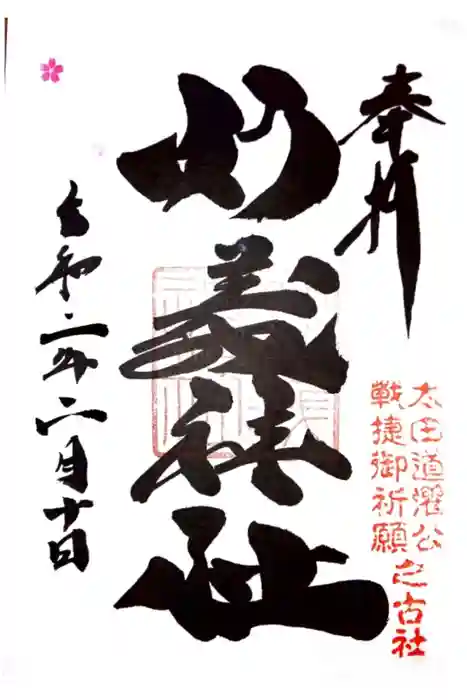 奉拝
太田道灌公
戰捷御祈願
之古社
妙義神社
令和二年二月十日